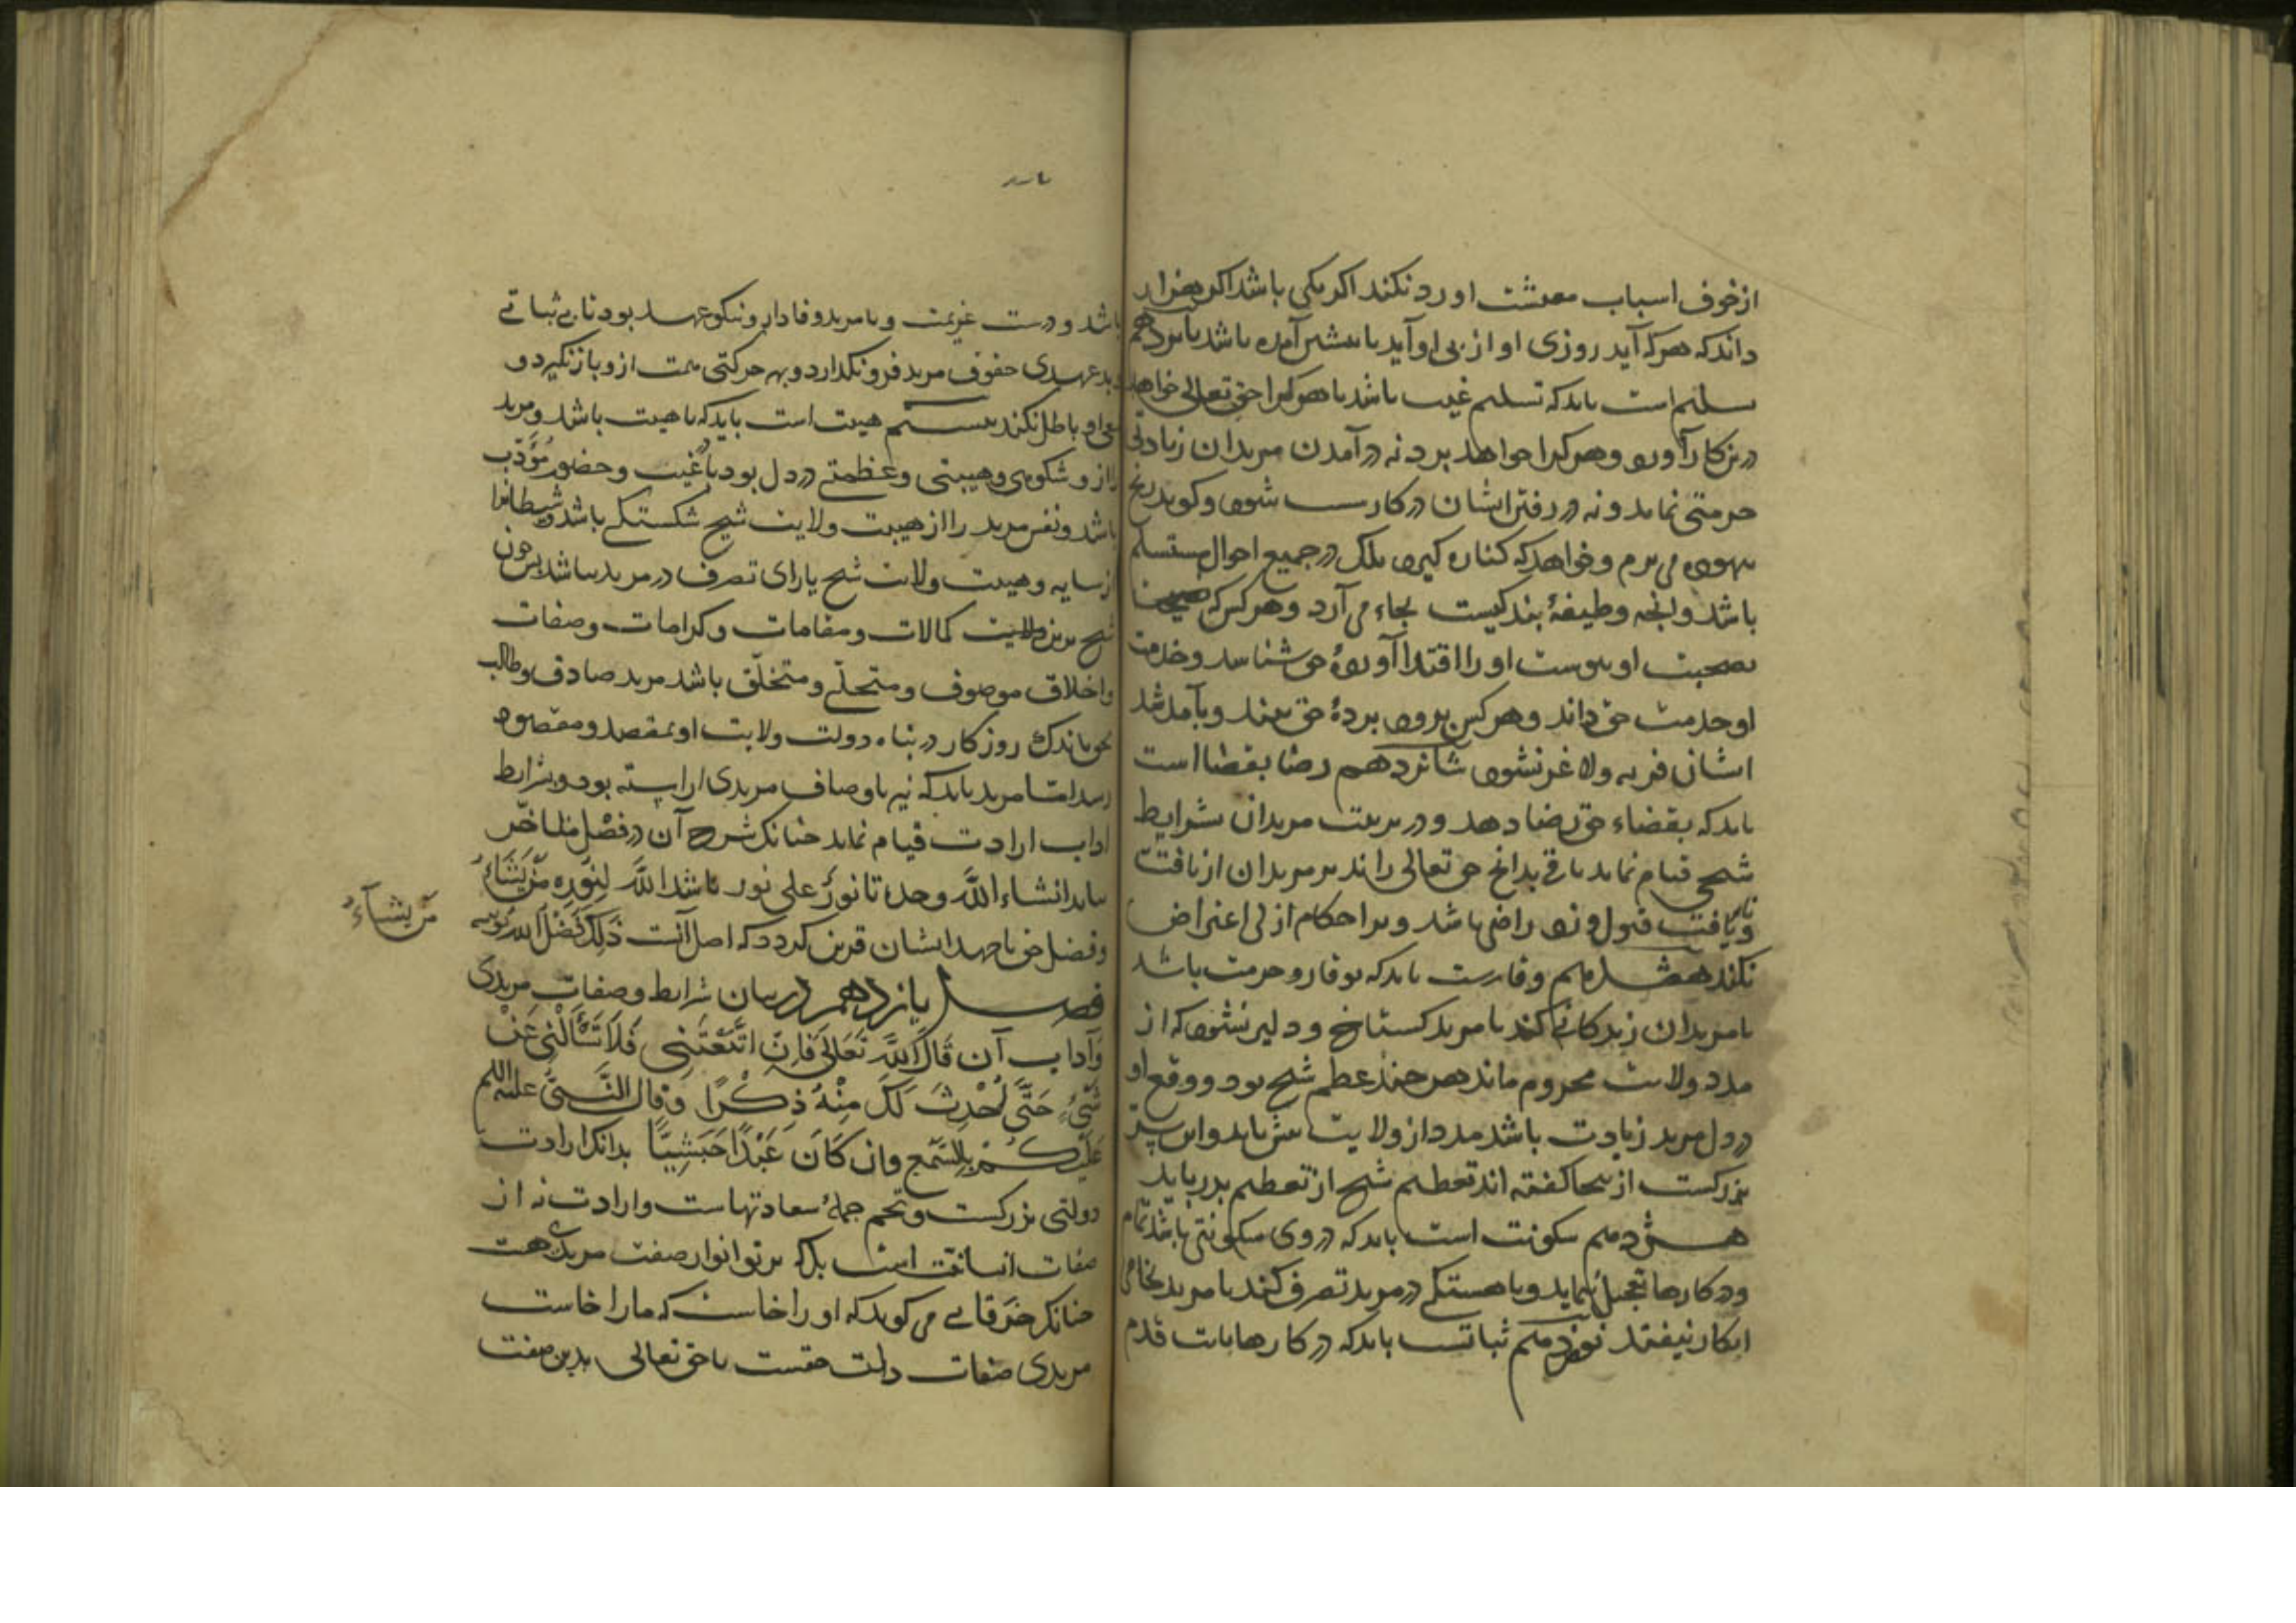 از خوف اسباب معیشت او رد نکند اکر یکی باشد اکر هزار
داند که هر که آید روزی او از پی او آید یا پیشتر آمده باشد پانزدهم
تسلیم است باید که تسلیم غیب باشد تا هر که را حق تعالی خواهد
درین کار آورد و هر که را خواهد برد نه در آمدن مریدان زیادتی
حرمتی نماید و نه در رفتن ایشان در کار سست شود و کوید رنج
بیهوده می برم و خواهد که کناره کیرد بلک در جمیع احوال مستسلم
باشد و آنچه وظیفهٔ بندکیست بجاء می آرد و هر کس که
بصحبت او پیوست او را اقتدا آوردهٔ حق شناسد و خدمت
او خدمت حق داند و هر کس برود بردهٔ حق بیند و بآمد شد
ایشان فربه و لاغر نشود شانزدهم رضا بقضا است
باید که بقضاء حق رضا دهد و در تربیت مریدان شرایط
شیخی قیام نماید باقی بدانچ حق تعالی راند بر مریدان از یافت
و نایافت قبول و رد راضی باشد و بر احکام ازلی اعتراض
نکند هفدهم وقارست باید که بوقار و حرمت باشد
با مریدان زندکانی کند تا مرید کستاخ و دلیر نشود که از
مدد ولایت محروم ماند هر چند عظم شیخ بود و وقع او
در دل مرید زیادت باشد مدد از ولایت بیش یابد و این سرّ
بزرکست از ینجا کفته اند تعظیم شیخ از تعظیم پدر باید
هشردهم سکونت است باید که در وی سکونتی باشد تمام
و در کارها تعجیل ننماید و باهستکی در مرید تصرف کند تا مرید بخامی
انکار نیفتد نوزدهم ثباتست باید که در کارها ثابت قدم
باشد و درست عزیمت و با مرید وفادار و نیکو عهد بود تا بی ثباتی
و بد عهدی حقوق مرید فرو نکذارد و بهر حرکتی همت ازو باز نکیرد و
سعی او باطل نکند بیستم هیبت است باید که با هیبت باشد و مرید
را از و شکوهی و هیبتی و عظمتی در دل بود تا در غیبت و حضور مؤدّب
باشد و نفس مرید را از هیبت ولایت شیخ شکستکی باشد و شیطانرا
از سایه و هیبت ولایت شیخ یارای تصرف در مرید نباشد پس چون
شیخ برین کمالات و مقامات و کرامات و صفات
و اخلاق موصوف و متحلّی و متخلّق باشد مرید صادق و طالب
حق باندک روزکار در پناه دولت ولایت او بمقصد و مقصود
رسد امّا مرید باید که نیز باوصاف مریدی آراسته بود و بشرایط
آداب ارادت قیام نماید چنانک شرح آن در فصل متاخّر
بیاید انشاء اللّه وحده تا نورٌ علی نور باشد اللّه لِنُورِه مَنْ یَشَاءُ
و فضل حق با جهد ایشان قرین کردد که اصل آنست ذَلِكَ فَضْلُ اللّه یؤتیه
مَن یشآءُ
فصل یازدهم در بیان شرایط و صفات مریدی
وَآداب آن قَالَ اللَّه تَعَالَی فَاِنِ اتَّبَعْتَنِی فَلَا تَسْأَلْنِی عَنْ
شَیْءٍ حَتَّی اُحْدِثَ لَكَ مِنْهُ ذِكْرًا وَقَالَ النَّبِیُّ علیه السلم
عَلَیْكُمْ بِالسَّمْعِ وَان كَانَ عَبْدًا حَبَشِیًّا بدانک ارادت
دولتی بزرکست و تخم جملهٔ سعادتهاست و ارادت نه از
صفات انسانیّت است بلک پرتو انوار صفت مریدی حق است
چنانک خرقانی می کوید که او را خاست که ما را خاست
مریدی صفات ذات حقست تا حق تعالی بدین صفت